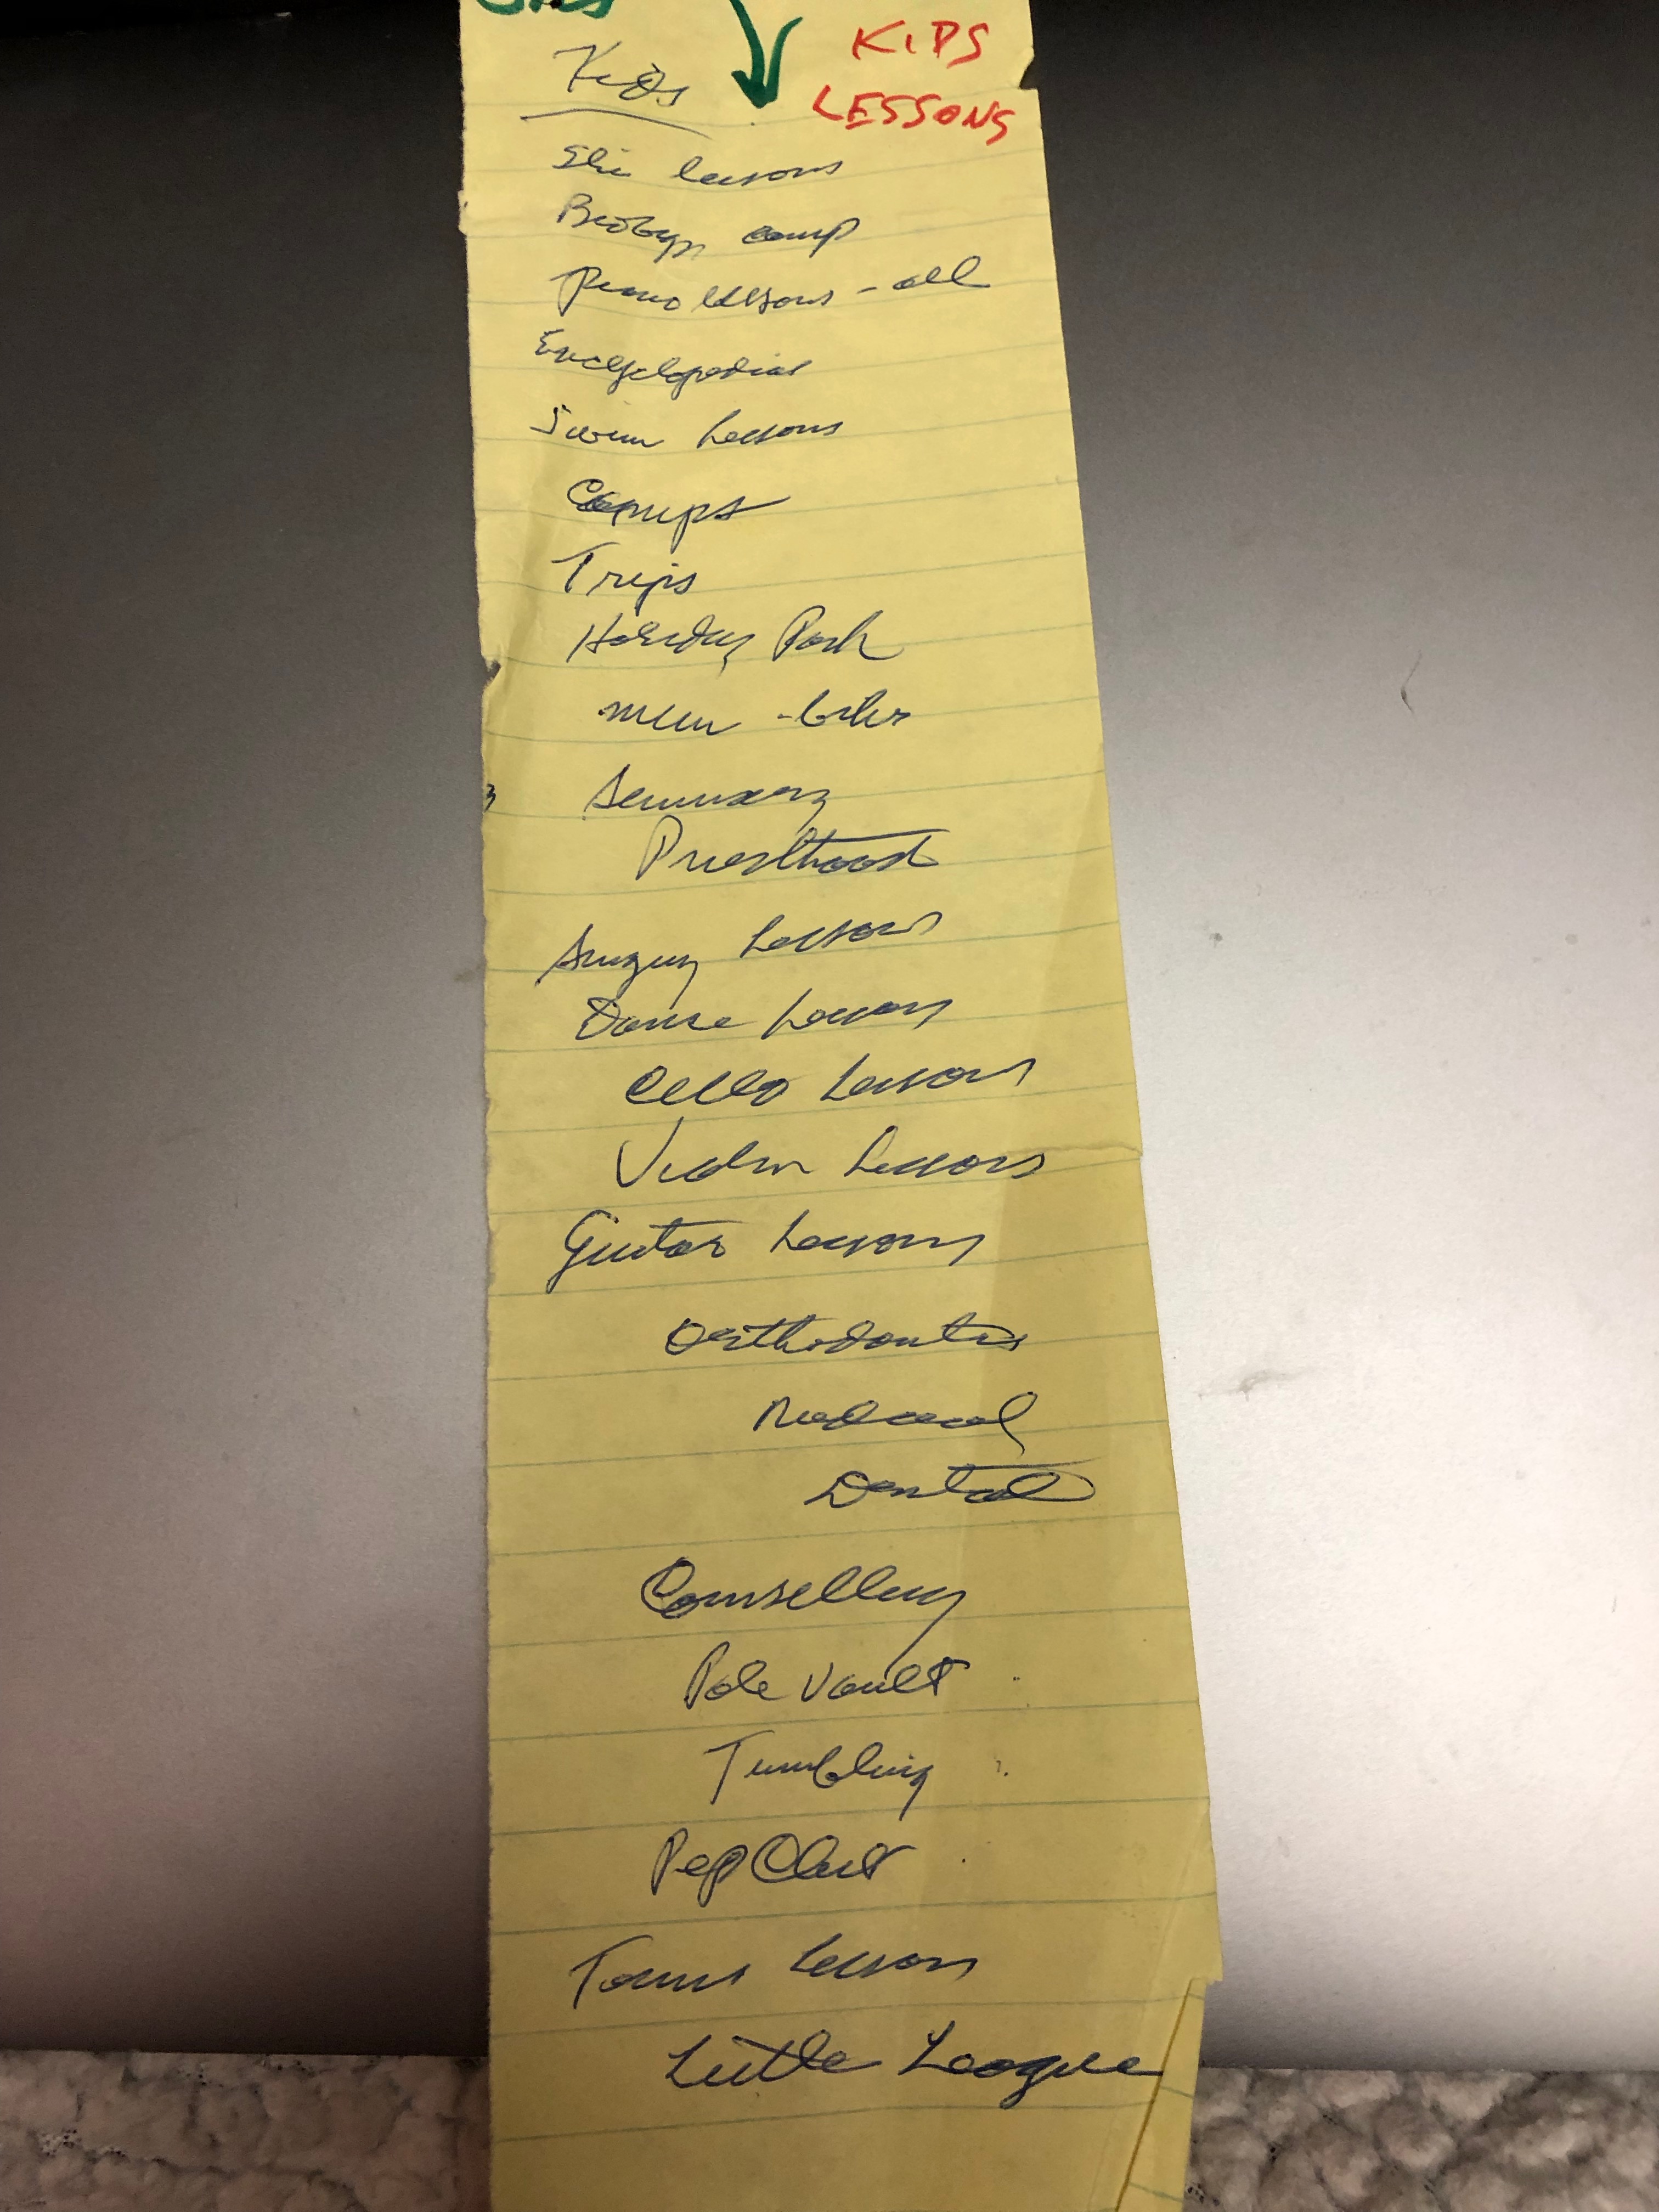 KIDS
LESSONS
Kids
Ski lessons
Biology camp
Piano lessons - all
Encyclopedias
Swim Lessons
Camps
Trips
Holiday Park
mini - bike
Seminary
Priesthood
Singing Lessons
Dance Lessons
Cello Lessons
Violin Lessons
Guitar Lessons
Orthodontis
Medical
Dental
Counselling
Pole Vault
Tumbling
Pep Club
Tennis Lessons
Little League